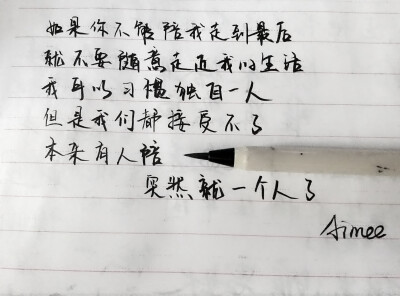 如果你不能陪我走到最后
就不要随意走近我的生活
我可以习惯独自一人
但是我们都接受不了
本来有人陪
突然就一个人了
Aimee